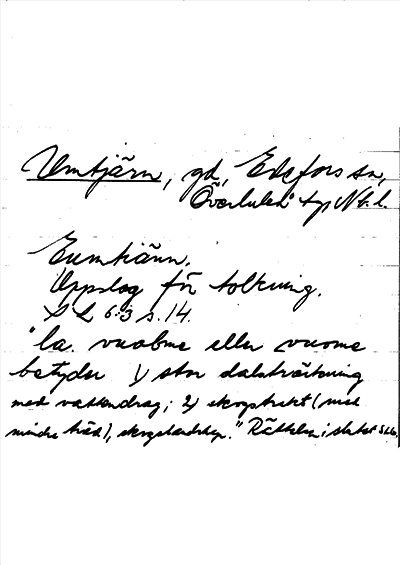 Umtjärn, gd, Edefors sn,
Överluleå tg, Nb. l.
Eumtiänn.
Uppslag för tolkning.
SL 6:3 s. 14.
"la. vuobme eller vuome
betyder 1) stor dalsträckning
med vattendrag; 2) skogstrakt (med
mindre träd), skogslandskap." Rättelser i slutet